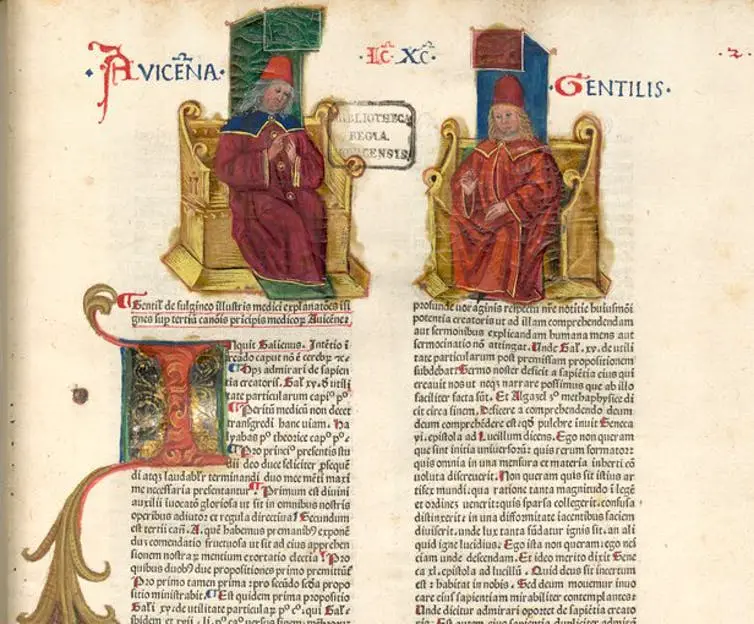 AVICENA.
.Lc̃. Xc̃.
GENTILIS.
.2.
BIBLIOTHECA
REGIA
MONACENSIS
Gentil' de fulgineo illustris medici explanatões isi
gnes sup tertiũ canõis prĩcipis medicoꝝ Auicene:
INquit Galienus. Intẽtio ĩ
creãdo caput nõ ẽ cerebꝝ ⁊c
Ops admirari de sapien
tia creatoris. Gal' xv. ð vtili
tate particularum capi° p°
Peritũ medicũ non decet
transgredi hanc uiam. Ha
lyabas p° theorice cap° p° e
Pro princi° presentis stu
dii deo duce feliciter ꝓsequẽ
di atqꝫ laudabl'r terminandi duo mee mẽti maxi
me necessaria presentantur Primum est diuini
auxilii iuocatõ gloriosa ut sit in omnibus nostris
operibus adiutor et regula directiua Secundum
est tertii canõ. A. quẽ habemus premanibꝰ exponẽ
dus cõmendatio fructuosa ut sit ad eius apprehen
sionem nostraꝝ mentium exortatio electia Pro
quibus duobꝰ due propositiones primo premittũt
Pro primo tamen prima: pro secũdo secũda propo
sitio ministrabit Est quidem prima propositio
Gal'i xv. de utilitate particulaꝝ p° c°. qui Gal'e
profunde uoraginis respectu nr̃e notitie huiusmõi
potentia creatoris ut ad illam comprehendendam
aut sermonibus explicandam humana mens aut
sermocinatio nõ attingat. Unde Gal'. xv. de utili
tate particularum post premissam propositionem
subdebat: Sermo noster deficit a sapiẽtia eius qui
creauit nos ut neqꝫ narrare possimus que ab illo
faciliter facta sũt. Et Algazel 5° methaphisice di
cit circa finem. Deficere a comprehendendo deum
deum comprehẽdere est: qð pulchre inuit Seneca
vi. epistola ad Lucillum dicens. Ego non queram
que sint initia uniuersoꝝ: quis rerum formator:
quis omnia in una mensura et materia inherti cõ
uoluta discreuerit. Non queram quis sit istius ar
tifex mundi: qua ratione tanta magnitudo ĩ legẽ
et ordinẽ uenerit: quis sparsa collegerit. confusa
distinxerit: in una difformitate iacentibus faciem
diuiserit. unde lux tanta fũdatur ignis sit. an ali
quid igne lucidius. Ego ista non queram: ego nei
ciam unde descendam. Et ideo merito dixit Sene
ca xl. epistola ad lucillũ. Quid deus sit incertum
est: habitat in nobis. Sed deum mouemur inuo
care cius sapientiam mirabiliter contemplantes:
Unde dicitur admirari oportet de sapiẽtia creato